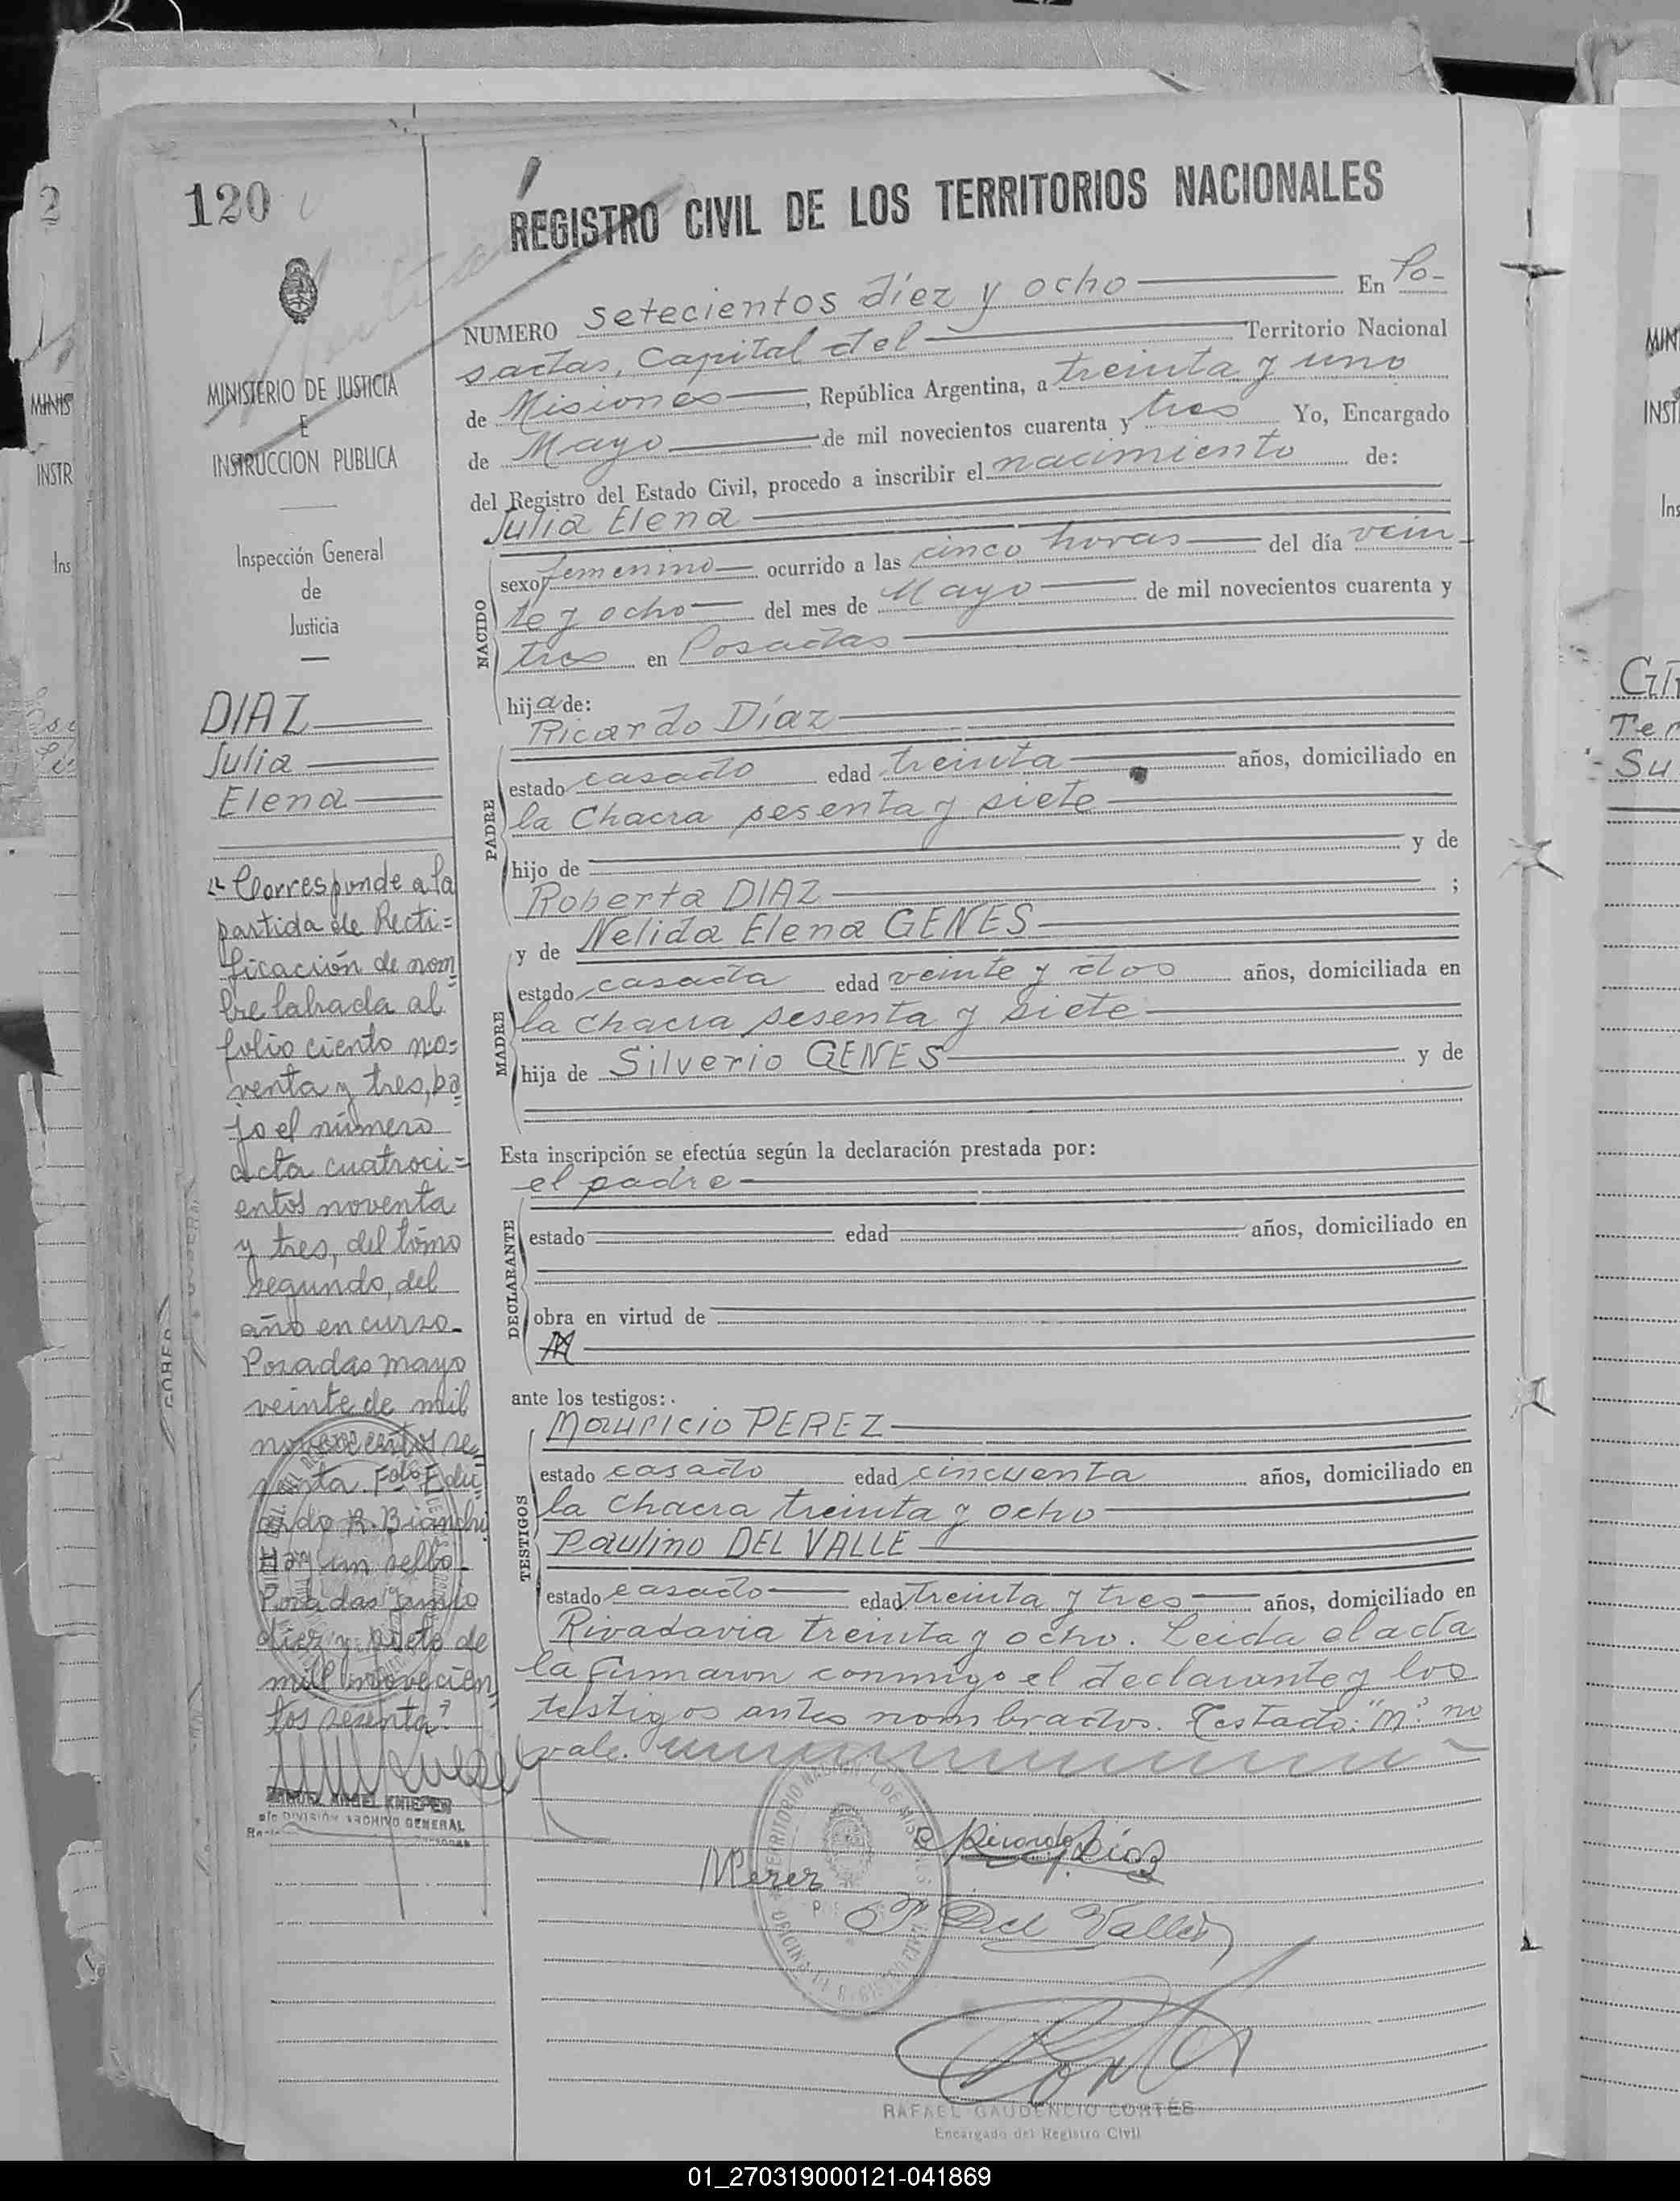 120
REGISTRO CIVIL DE LOS TERRITORIOS NACIONALES
MINISTERIO DE JUSTICIA
E
INSTRUCCION PUBLICA
Inspección General
de
Justicia
DIAZ
Julia
Elena
"Corresponde a la
partida de Recti=
ficación de nom=
bre labrada al
folio ciento no=
venta y tres, ba=
jo el número
acta cuatroci=
entos noventa
y tres, del tomo
segundo, del
año en curso.
Posadas mayo
veinte de mil
novecientos se=
senta. Fdo Edu=
ardo R. Bianchi
Hay un sello.
Posadas Junio
diez y siete de
mil novecien=
tos sesenta"
ANGEL KNIEPER
DIVISION ARCHIVO GENERAL
NUMERO setecientos diez y ocho En Po-
sadas, Capital del Territorio Nacional
de Misiones, República Argentina, a treinta y uno
de Mayo de mil novecientos cuarenta y tres Yo, Encargado
del Registro del Estado Civil, procedo a inscribir el nacimiento de:
Julia Elena
NACIDO
sexo femenino ocurrido a las cinco horas del día vein-
te y ocho del mes de Mayo de mil novecientos cuarenta y
tres en Posadas
hija de:
Ricardo Díaz
PADRE
estado casado edad treinta años, domiciliado en
la Chacra sesenta y siete
hijo de y de
Roberta DIAZ ;
y de Nelida Elena GENES
MADRE
estado casada edad veinte y dos años, domiciliada en
la chacra sesenta y siete
hija de Silverio GENES y de
Esta inscripción se efectúa según la declaración prestada por:
el padre
DECLARANTE
estado edad años, domiciliado en
obra en virtud de
ante los testigos:
Mauricio PEREZ
TESTIGOS
estado casado edad cincuenta años, domiciliado en
la chacra treinta y ocho
Paulino DEL VALLE
estado casado edad treinta y tres años, domiciliado en
Rivadavia treinta y ocho. Leida el acta
la firmaron conmigo el declarante y los
testigos antes nombrados. Testado: "m": no
vale.
Ricardo Díaz
MPerez
P Del Valle
RAFAEL GAUDENCIO CORTÉS
Encargado del Registro Civil
01_270319000121-041869